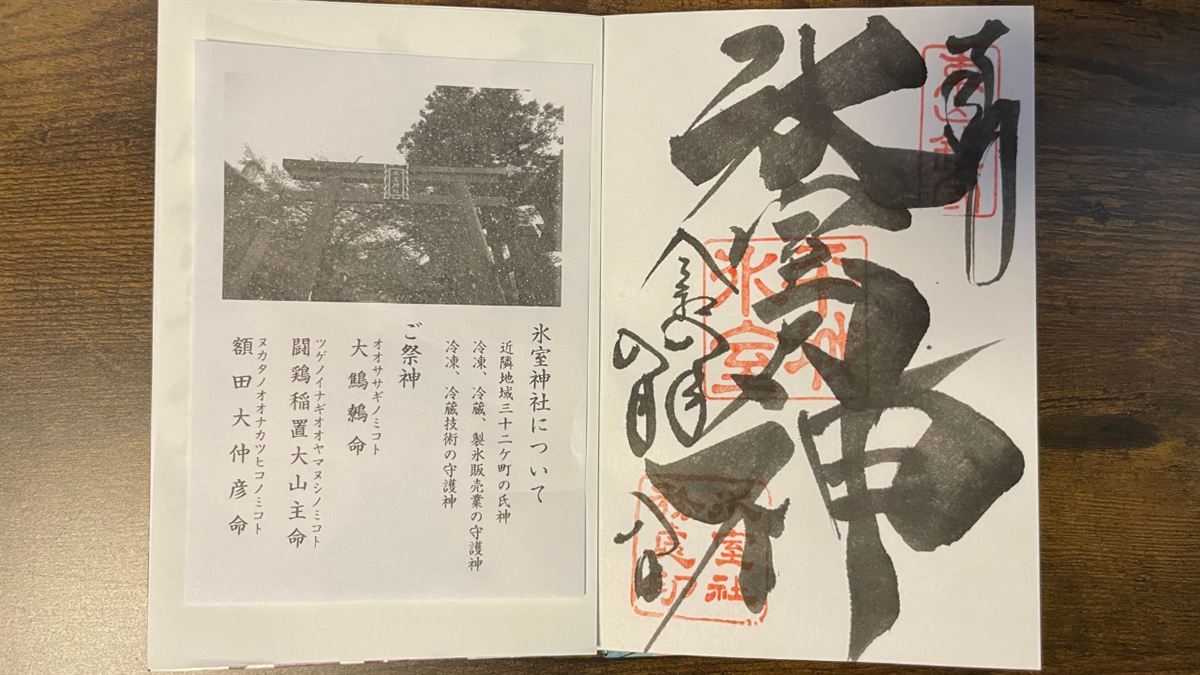 氷室神社について
近隣地域三十二ケ町の氏神
冷凍、冷蔵、製氷販売業の守護神
冷凍、冷蔵技術の守護神
ご祭神
オオササギノミコト
大鷦鷯命
ツゲノイナギオオヤマヌシノミコト
闘鶏稲置大山主命
ヌカタノオオナカツヒコノミコト
額田大仲彦命
氷室大神
平城
氷室